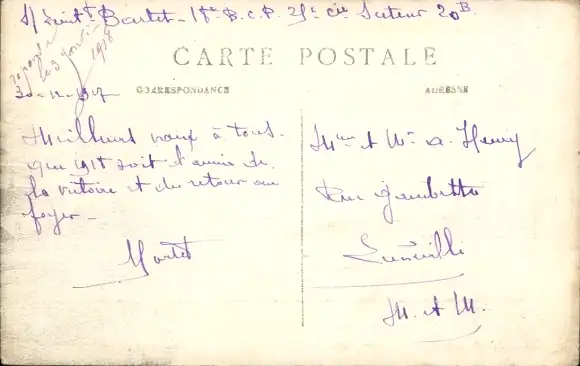 S/Lieutt Bartet - 18e B.C.P. 21e cie Secteur 20B.
répondu
le 3 Janvier
1918
CARTE POSTALE
CORRESPONDANCE
ADRESSE
30-12-1917
Meilleurs vœux à tous.
que 1918 soit l'année de
la victoire et du retour au
foyer -
Mme et Mr a. Henry
Rue Gambetta
Lunéville
M. et M.